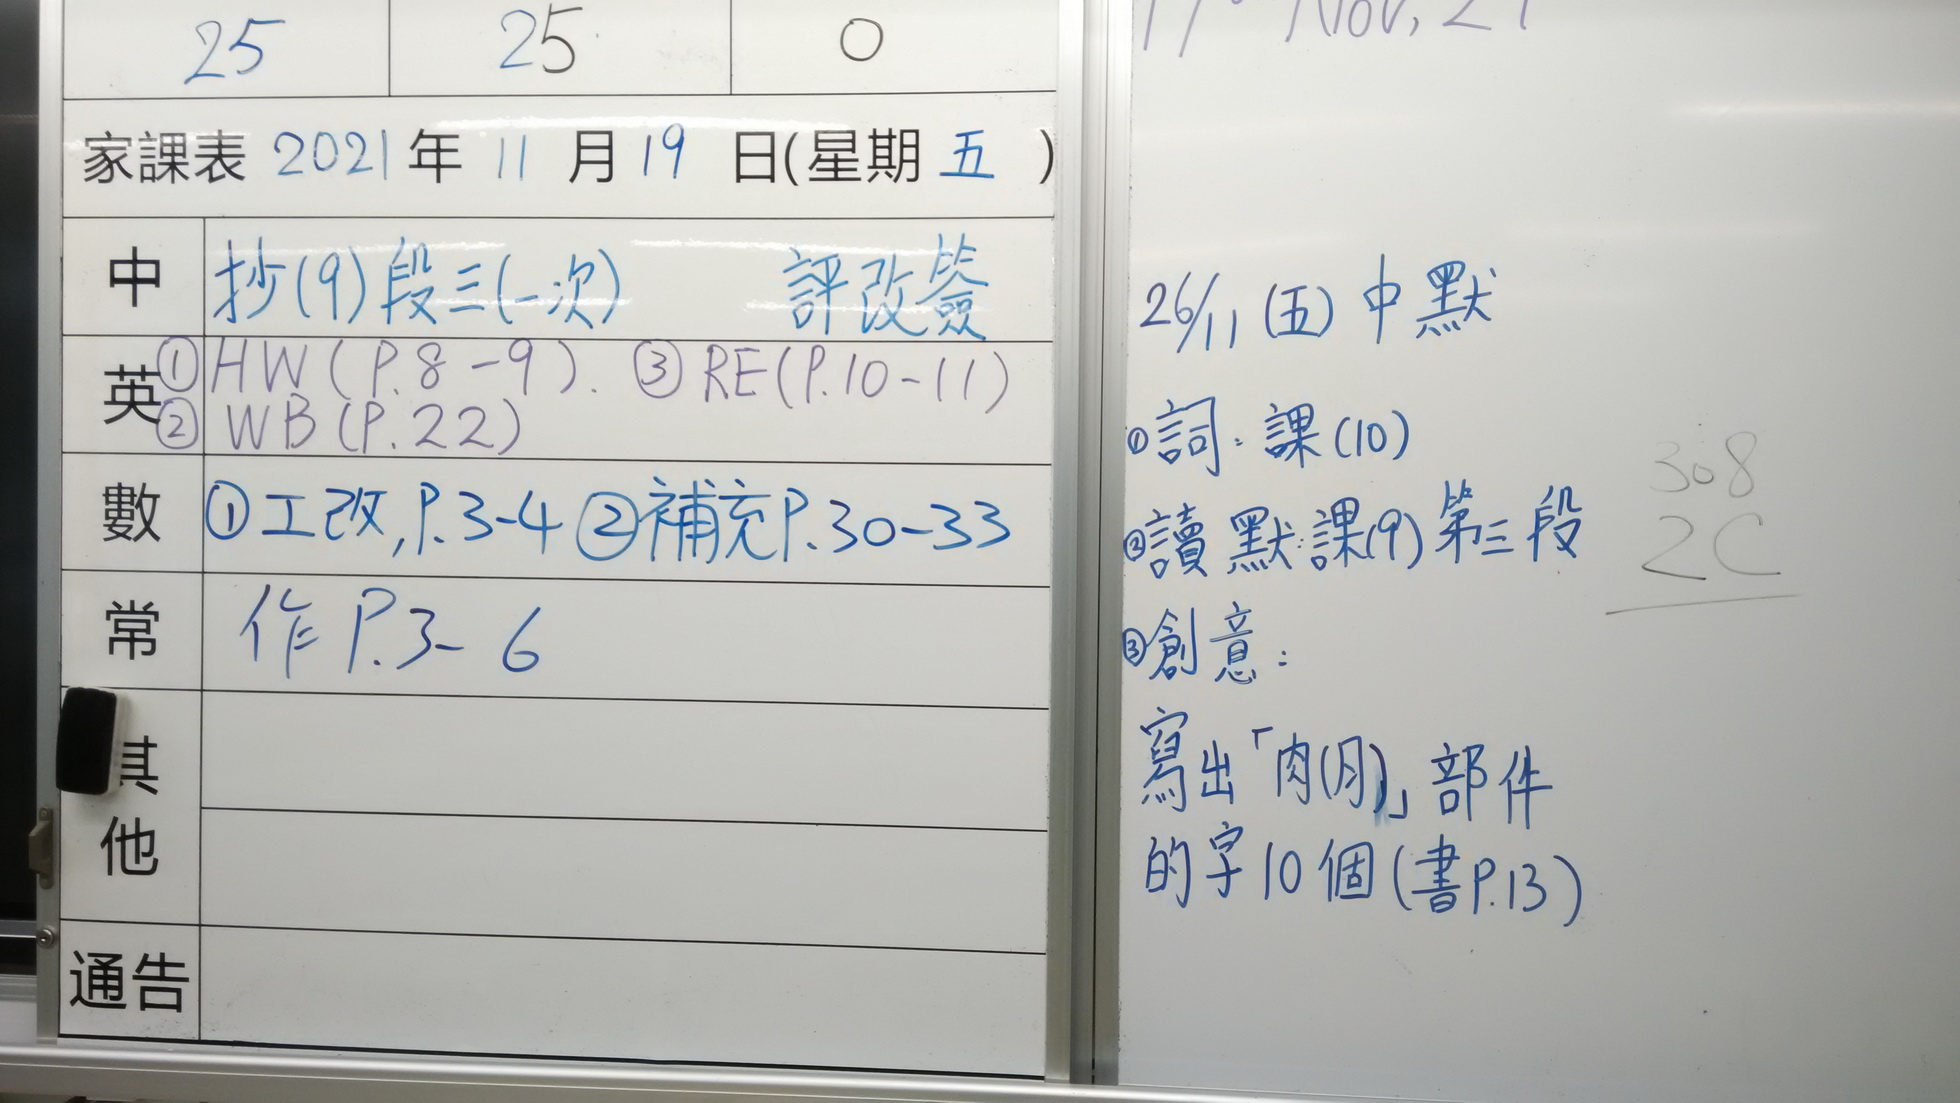 25 25 0
家課表 2021 年 11 月 19 日(星期 五 )
中 抄(9)段三(一次) 評改簽
英 ① HW (P.8-9). ③ RE(P.10-11)
② WB (P.22)
數 ①工改,P.3-4 ②補充P.30-33
常 作 P.3-6
其
他
通告
Nov, 21
26/11 (五) 中默
①詞:課(10)
②讀默:課(9)第三段
③創意:
寫出「肉(月)」部件
的字10個(書P.13)
308
2C